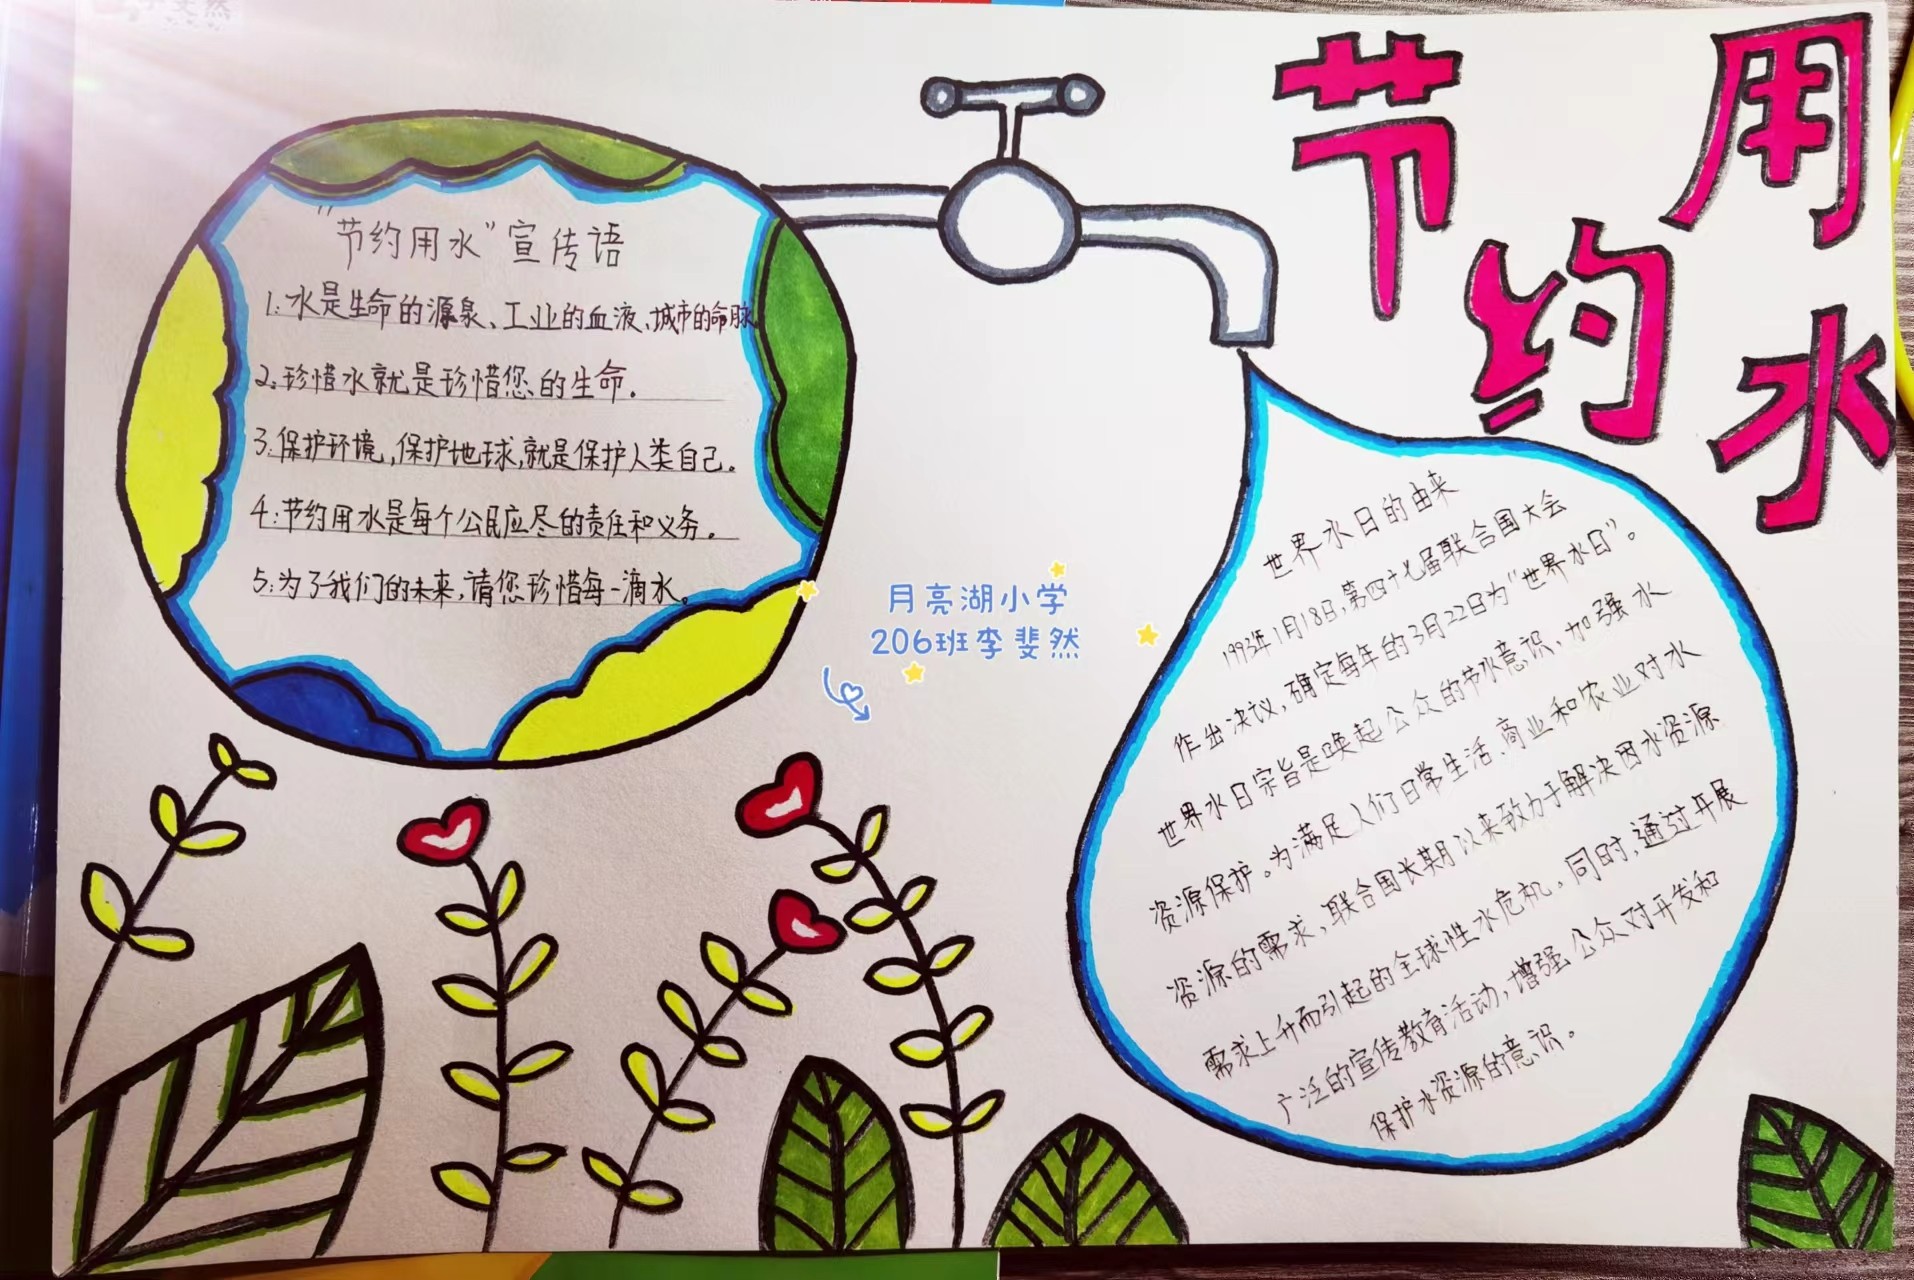 节约用水
"节约用水"宣传语
1:水是生命的源泉、工业的血液、城市的命脉
2:珍惜水就是珍惜您的生命。
3:保护环境,保护地球,就是保护人类自己。
4:节约用水是每个公民应尽的责任和义务。
5:为了我们的未来,请您珍惜每一滴水。
月亮湖小学
206班李斐然
世界水日的由来
1993年1月18日,第四十七届联合国大会
作出决议,确定每年的3月22日为"世界水日"。
世界水日宗旨是唤起公众的节水意识、加强水
资源保护。为满足人们日常生活、商业和农业对水
资源的需求,联合国长期以来致力于解决因水资源
需求上升而引起的全球性水危机。同时,通过开展
广泛的宣传教育活动,增强公众对开发和
保护水资源的意识。